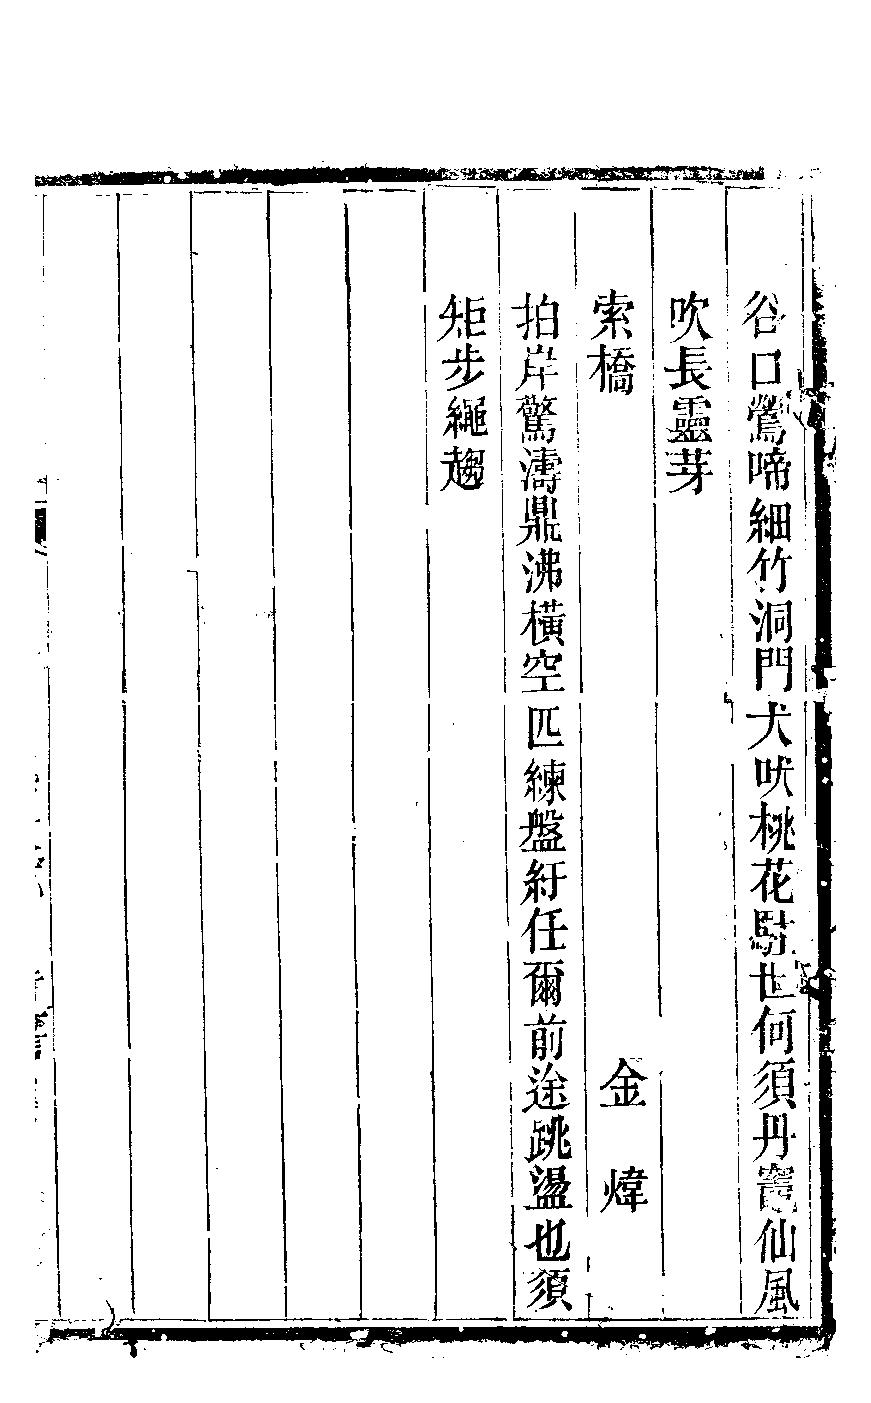 谷口鶯啼細竹洞門犬吠桃花駐世何須丹竈仙風
吹長靈芽
索橋　金煒
拍岸驚濤鼎沸橫空匹練盤紆任爾前途跳盪也須
矩步繩趨